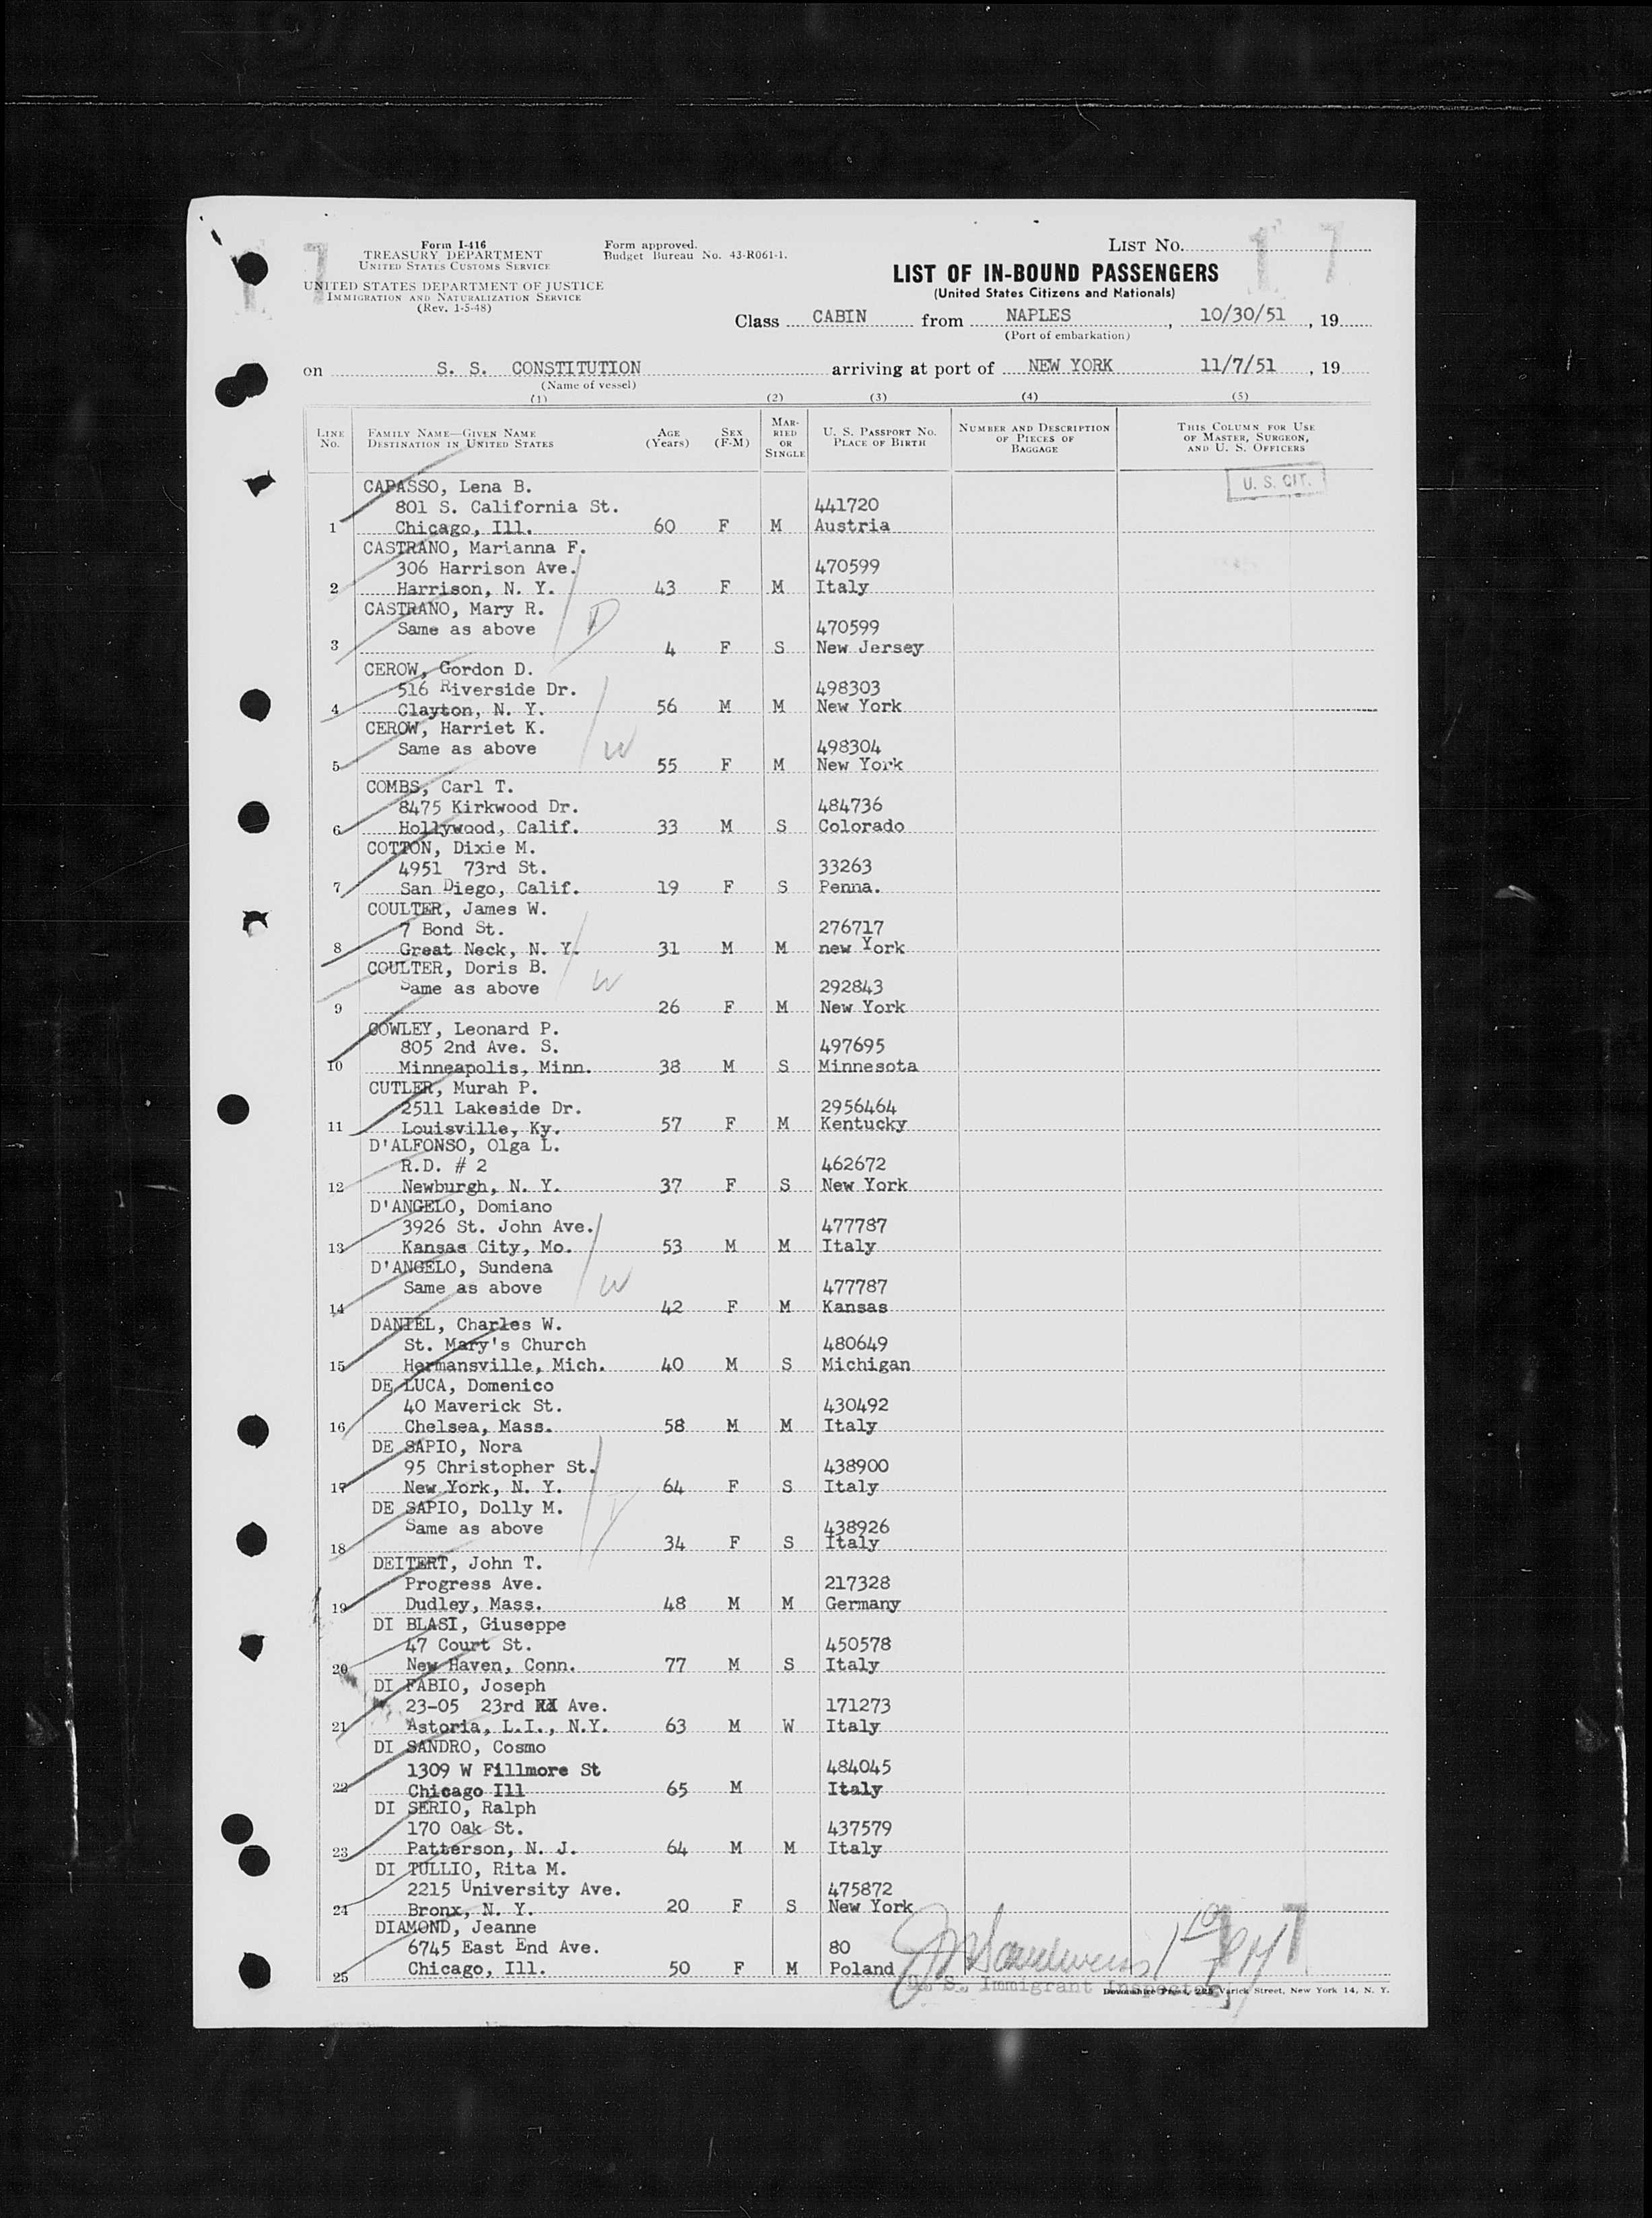 Form I-416
TREASURY DEPARTMENT
UNITED STATES CUSTOMS SERVICE
UNITED STATES DEPARTMENT OF JUSTICE
IMMIGRATION AND NATURALIZATION SERVICE
(Rev. 1-5-48)
Form approved.
Budget Bureau No. 43-R061-1.
LIST No. 17
LIST OF IN-BOUND PASSENGERS
(United States Citizens and Nationals)
Class CABIN from NAPLES, 10/30/51, 19
(Port of embarkation)
on S. S. CONSTITUTION arriving at port of NEW YORK 11/7/51, 19
(Name of vessel)
(1) (2) (3) (4) (5)
LINE No. FAMILY NAME—GIVEN NAME DESTINATION IN UNITED STATES AGE (Years) SEX (F-M) MARRIED OR SINGLE U. S. PASSPORT No. PLACE OF BIRTH NUMBER AND DESCRIPTION OF PIECES OF BAGGAGE THIS COLUMN FOR USE OF MASTER, SURGEON, AND U. S. OFFICERS
U. S. CIT.
CAPASSO, Lena B.
801 S. California St. 441720
1 Chicago, Ill. 60 F M Austria
CASTRANO, Marianna F.
306 Harrison Ave. 470599
2 Harrison, N. Y. 43 F M Italy
CASTRANO, Mary R.
Same as above D 470599
3 4 F S New Jersey
CEROW, Gordon D.
516 Riverside Dr. 498303
4 Clayton, N. Y. 56 M M New York
CEROW, Harriet K.
Same as above W 498304
5 55 F M New York
COMBS, Carl T.
8475 Kirkwood Dr. 484736
6 Hollywood, Calif. 33 M S Colorado
COTTON, Dixie M.
4951 73rd St. 33263
7 San Diego, Calif. 19 F S Penna.
COULTER, James W.
7 Bond St. 276717
8 Great Neck, N. Y. 31 M M new York
COULTER, Doris B.
Same as above W 292843
9 26 F M New York
COWLEY, Leonard P.
805 2nd Ave. S. 497695
10 Minneapolis, Minn. 38 M S Minnesota
CUTLER, Murah P.
2511 Lakeside Dr. 2956464
11 Louisville, Ky. 57 F M Kentucky
D'ALFONSO, Olga L.
R.D. # 2 462672
12 Newburgh, N. Y. 37 F S New York
D'ANGELO, Domiano
3926 St. John Ave. 477787
13 Kansas City, Mo. 53 M M Italy
D'ANGELO, Sundena
Same as above W 477787
14 42 F M Kansas
DANIEL, Charles W.
St. Mary's Church 480649
15 Hermansville, Mich. 40 M S Michigan
DE LUCA, Domenico
40 Maverick St. 430492
16 Chelsea, Mass. 58 M M Italy
DE SAPIO, Nora
95 Christopher St. 438900
17 New York, N. Y. 64 F S Italy
DE SAPIO, Dolly M.
Same as above 438926
18 34 F S Italy
DEITERT, John T.
Progress Ave. 217328
19 Dudley, Mass. 48 M M Germany
DI BLASI, Giuseppe
47 Court St. 450578
20 New Haven, Conn. 77 M S Italy
DI FABIO, Joseph
23-05 23rd Ave. 171273
21 Astoria, L.I., N.Y. 63 M W Italy
DI SANDRO, Cosmo
1309 W Fillmore St 484045
22 Chicago Ill 65 M Italy
DI SERIO, Ralph
170 Oak St. 437579
23 Patterson, N. J. 64 M M Italy
DI TULLIO, Rita M.
2215 University Ave. 475872
24 Bronx, N. Y. 20 F S New York
DIAMOND, Jeanne
6745 East End Ave. 80
25 Chicago, Ill. 50 F M Poland
U. S. Immigrant Inspector
Devonshire Press, 225 Varick Street, New York 14, N. Y.